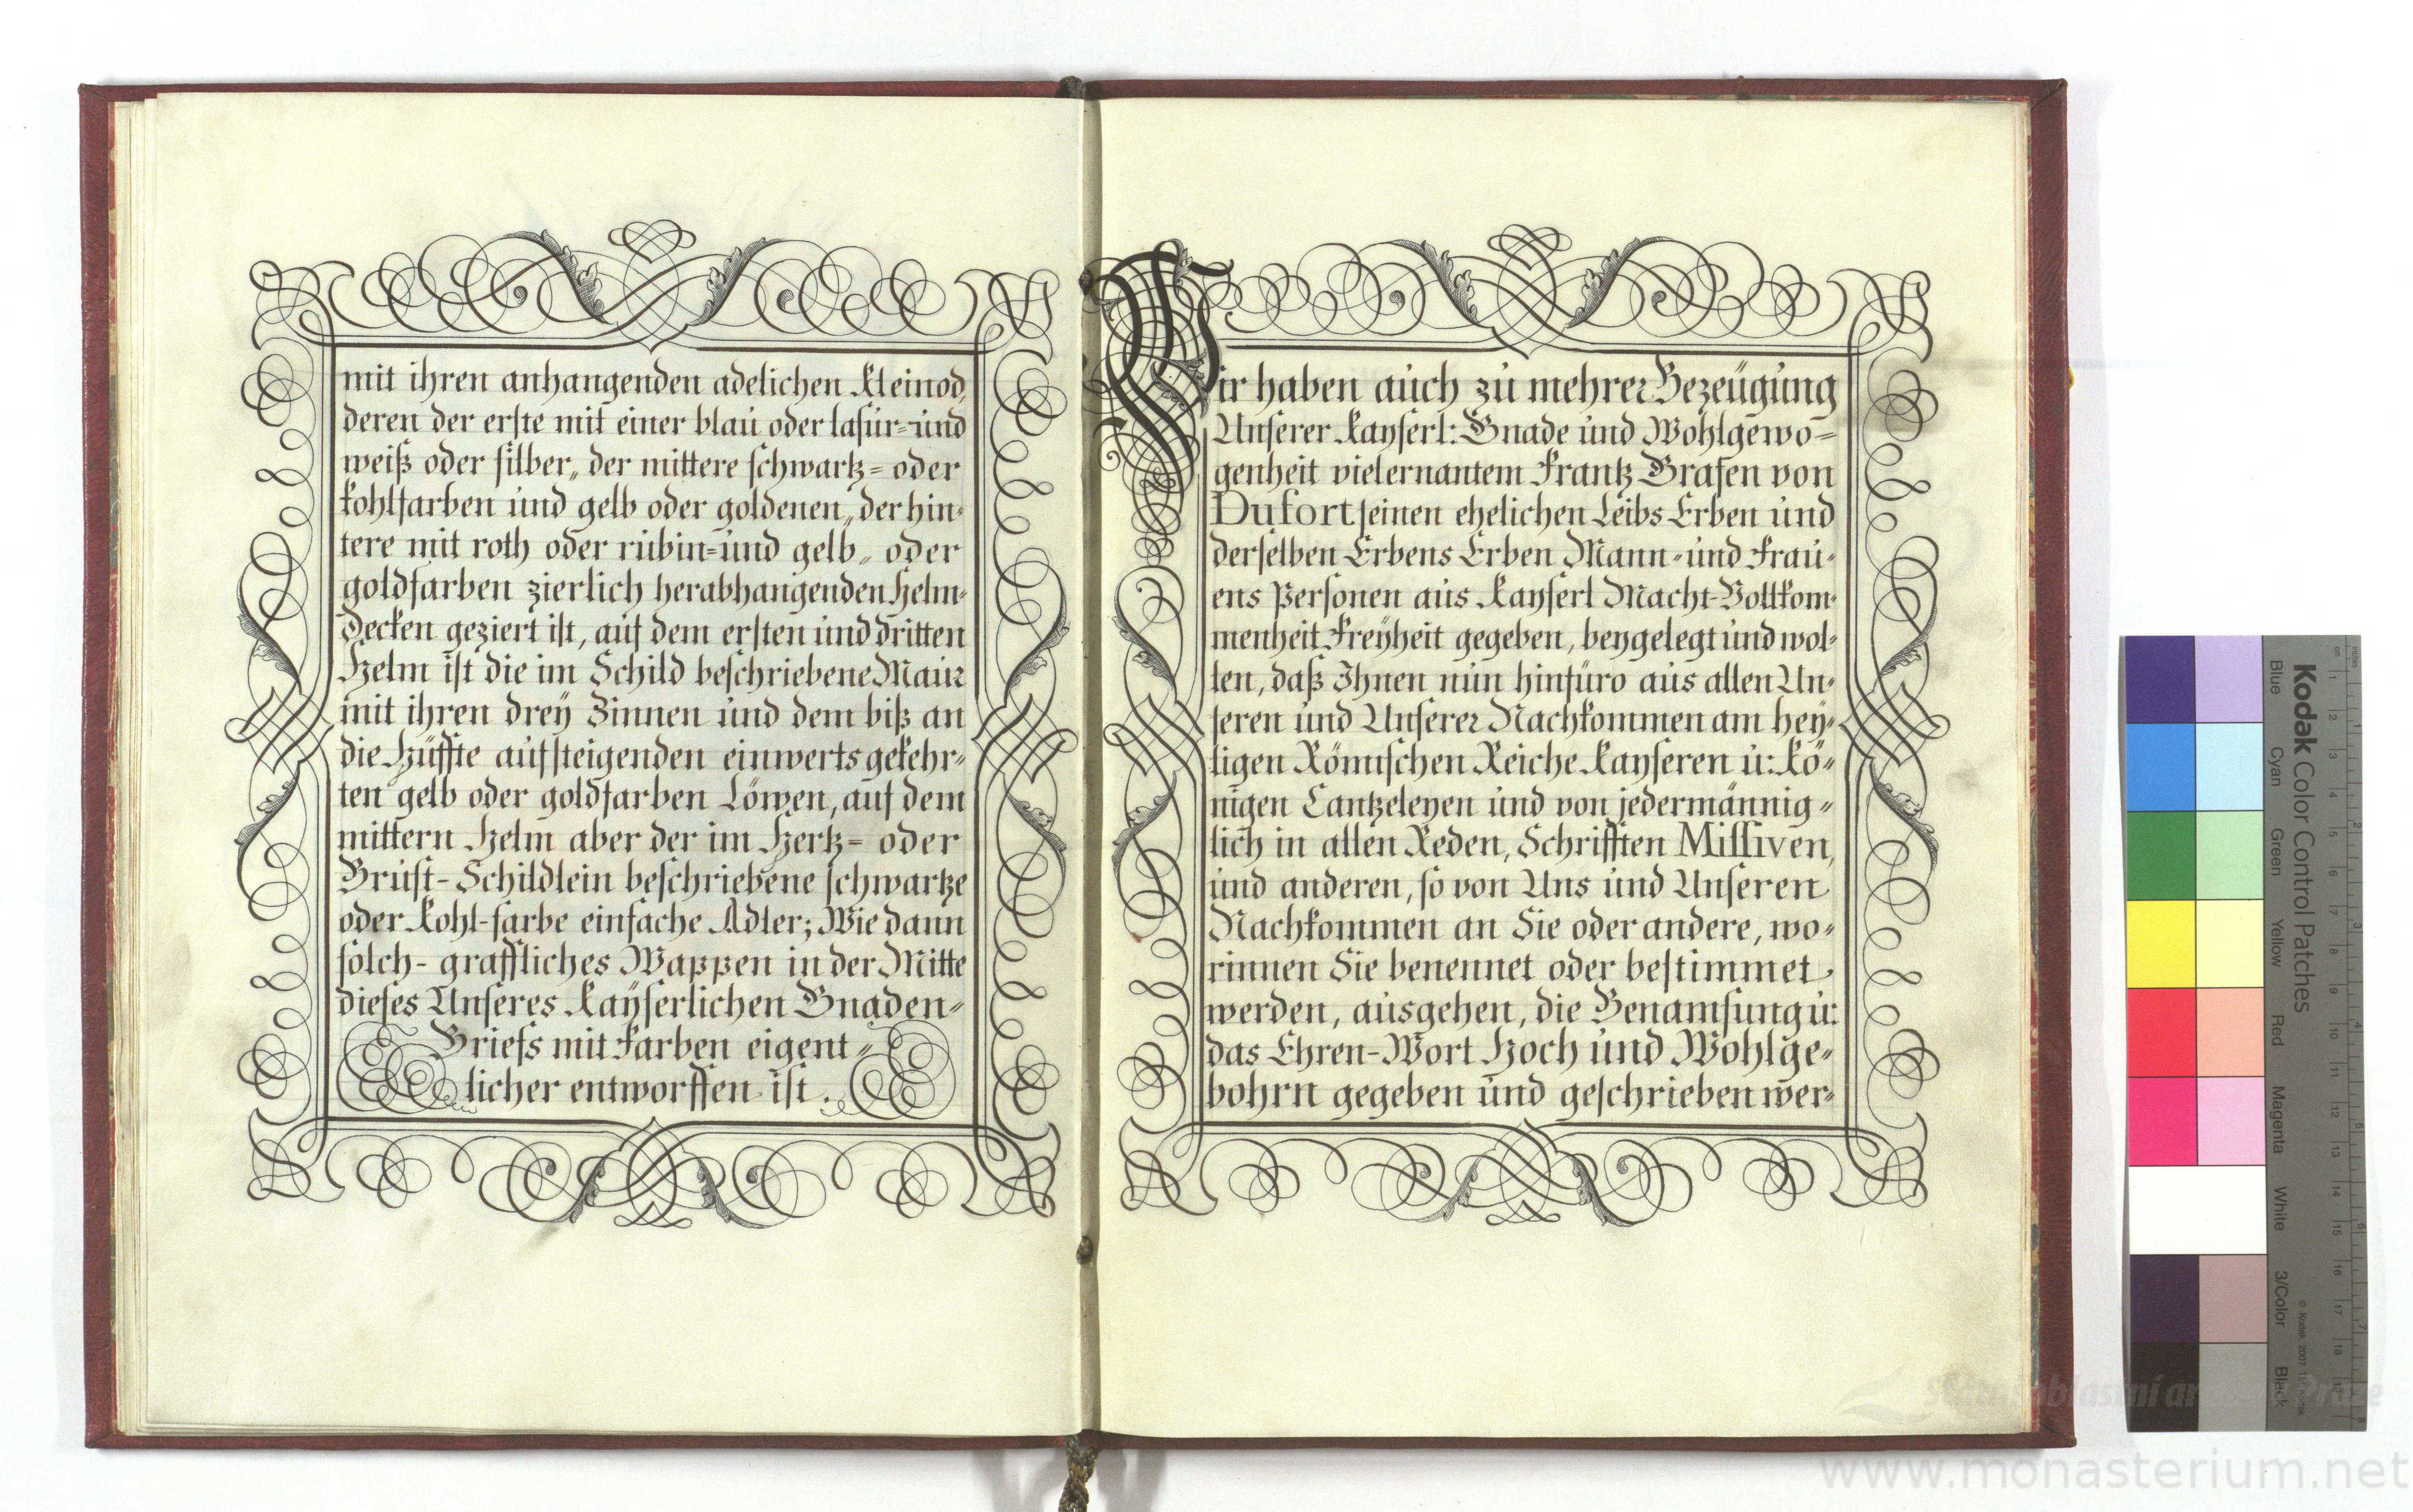 mit ihren anhangenden adelichen Kleinod,
deren der erste mit einer blau oder lasur= und
weiß oder silber„ der mittere schwartz= oder
kohlfarben und gelb oder goldenen„ der hin=
tere mit roth oder rubin= und gelb„ oder
goldfarben zierlich herabhangenden Helm=
Decken geziert ist, auf dem ersten und dritten
Helm ist die im Schild beschriebene Maur
mit ihren dreÿ Zinnen und dem biß an
die Hüffte aufsteigenden einwerts gekehr=
ten gelb oder goldfarben Löwen, auf dem
mittern Helm aber der im Hertz= oder
Brust-Schildlein beschriebene schwartze
oder Kohl-farbe einfache Adler; Wie dann
solch- gräffliches Wappen in der Mitte
dieses Unseres Kaÿserlichen Gnaden=
Briefs mit Farben eigent=
licher entworffen ist.
Wir haben auch zu mehrer Bezeügung
Unserer Kaÿserl: Gnade und Wohlgewo=
genheit vielernantem Frantz Grafen von
Dufort seinen ehelichen Leibs Erben und
derselben Erbens Erben Mann= und Frau=
ens Persohnen aus Kaÿserl Macht-Vollkom=
menheit Freÿheit gegeben, beygelegt und wol=
len, daß Ihnen nun hinfüro aus allen Un=
seren und Unserer Nachkommen am heÿ=
ligen Römischen Reiche Kaÿseren u: Kö=
nigen Cantzeleÿen und von jedermännig=
lich in allen Reden, Schrifften Missiven,
und anderen, so von Uns und Unseren
Nachkommen an Sie oder andere, wo=
rinnen Sie benennet oder bestimmet
werden, ausgehen, die Benamsung u:
das Ehren-Wort Hoch und Wohlge=
bohrn gegeben und geschrieben wer=
Kodak Color Control Patches
Blue
Cyan
Green
Yellow
Red
Magenta
White
3/Color
Black
www.monasterium.net